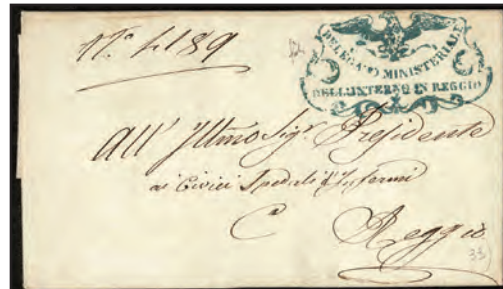 N.° 4189
DELEGATO MINISTERIALE
DELL'INTERNO IN REGGIO
All' Illmo Sigr. Presidente
ai Civici Spedali d'Infermi
Reggio